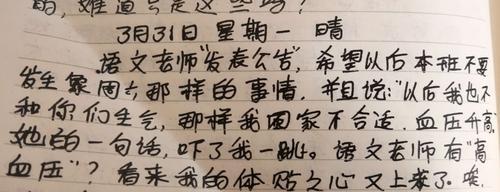 的，难道只是这些吗？
3月31日 星期一 晴
语文老师“发表公告”，希望以后本班不要
发生象周六那样的事情，并且说：“以后我也不
和你们生气，那样我回家不合适，血压升高”
她的一句话，吓了我一跳。语文老师有“高
血压”？看来我的体贴之心又上来了。唉，